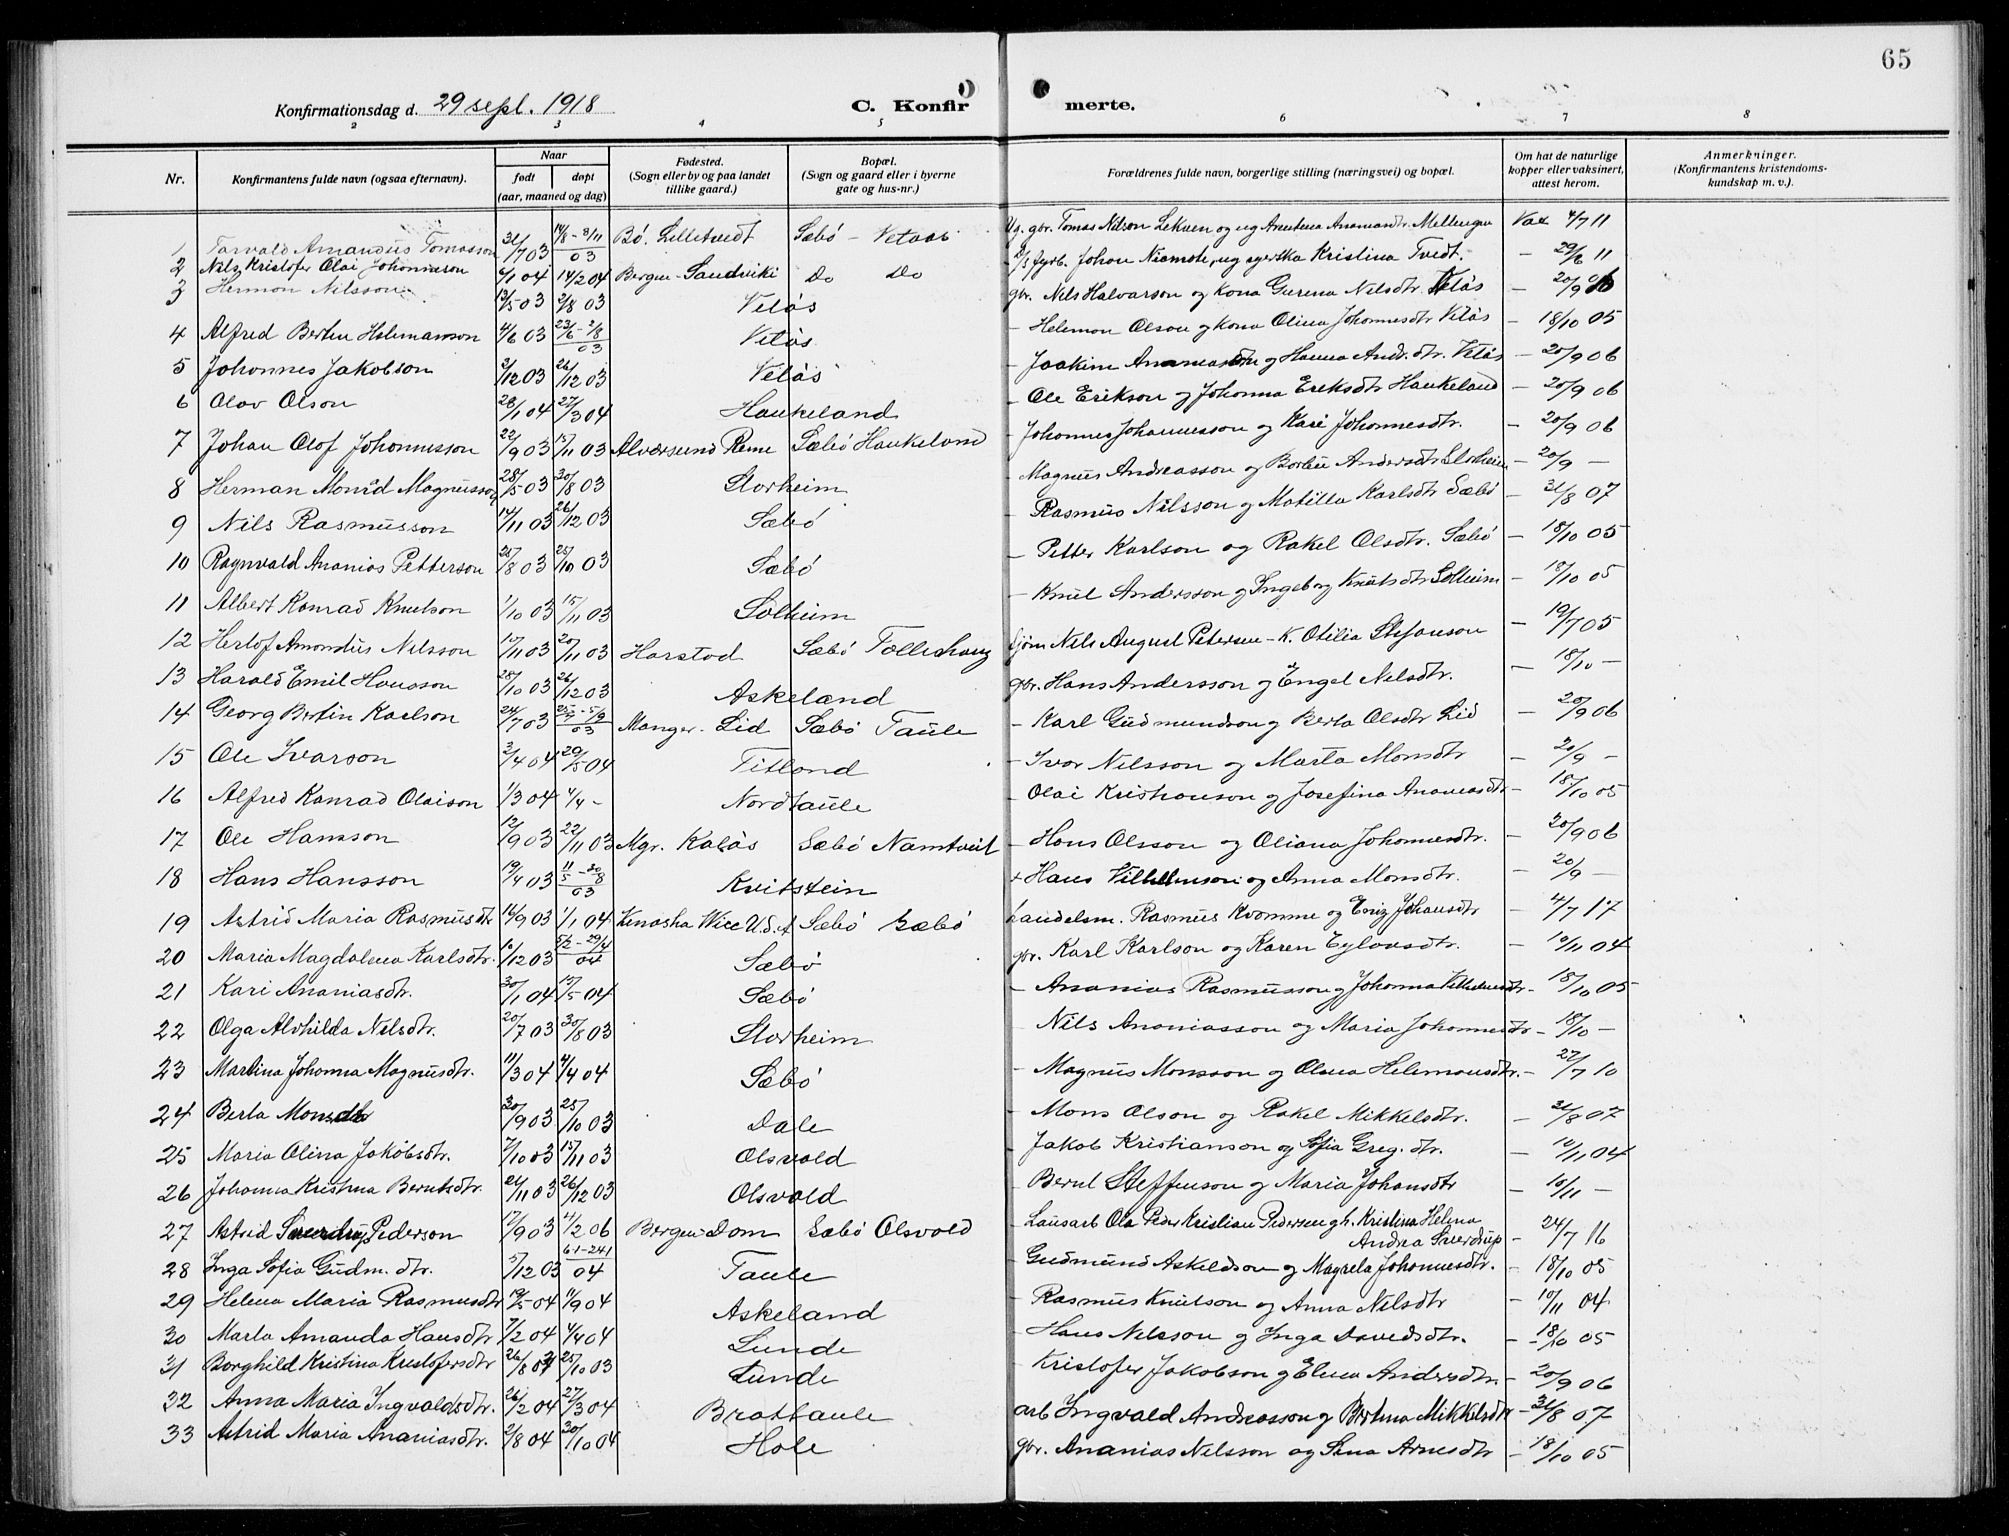 65
Konfirmationsdag d. 29 sept. 1918 C. Konfirmerte.
2 3 4 5 6 7 8
Nr. Konfirmantens fulde navn (ogsaa efternavn). Naar født døpt (aar, maaned og dag) Fødested. (Sogn eller by og paa landet tillike gaard.) Bopæl. (Sogn og gaard eller i byerne gate og hus-nr.) Forældrenes fulde navn, borgerlige stilling (næringsvei) og bopæl. Om hat de naturlige kopper eller vaksinert, attest herom. Anmerkninger. (Konfirmantens kristendomskundskap m. v.).
1 Torvald Amandus Tomasson 31/7 03 14/8 - 8/11 03 Bö. Lilletvedt Sæbö - Vetaas Ug. gbr. Tomas Nilson Lekven og ug Ananiasdtr. Mellingen Vax 4/7 11
2 Nils Kristofer Olai Johannesson 6/1 04 14/2 04 Bergen - Sandviki Do Do fyrb. Johan ug Kristina Tvedt. - 29/6 11
3 Hermon Nilsson 13/5 03 2/8 03 Vetås gbr. Nils Halvarson og kona Gurena Nilsdtr. Vetås - 20/9 06
4 Alfred Bertin Helemanson 4/6 03 23/6 - 2/8 03 Vetås - Helemon Olson og kona Olina Johannesdtr Vetås - 18/10 05
5 Johannes Jakobson 2/12 03 26/12 03 Vetås - Joakim og Hanna And. dtr. Vetås - 20/9 06
6 Olav Olson 28/1 04 27/3 04 Haukeland - Ole Erikson og Johanna Eriksdtr Haukeland - 20/9 06
7 Johan Olof Johannesson 22/9 03 15/11 03 Alversund Reme Sæbö Haukeland - Johannes Johannesson og Kari Johannesdtr. - 20/9 06
8 Herman Monrad Magnusson 28/5 03 30/8 03 Storheim - Magnus Andreasson og Andersdtr Storheim - 20/9 -
9 Nils Rasmusson 14/11 03 26/12 03 Sæbö - Rasmus Nilsson og Matilla Karlsdtr Sæbö - 31/8 07
10 Ragnvald Ananias Petterson 25/8 03 25/10 03 Sæbö - Petter Karlson og Rakel Olsdtr. Sæbö - 18/10 05
11 Albert Konrad Knutson 1/10 03 15/11 03 Solheim - Knut Andersson og Ingeborg Knutsdtr Solheim - 18/10 05
12 Herlof Amandus Nilsson 10/11 03 20/11 03 Harstad Sæbö Tollshaug Sjöm Nils August Petersen - K. Otilia Stefanson - 19/7 05
13 Harald Emil Hansson 28/10 03 26/12 03 Askeland gbr. Hans Andersson og Engel Nilsdtr. - 18/10 -
14 Georg Bertin Karlson 24/7 03 5/9 03 Manger - Lid Sæbö Taule - Karl Gudmundson og Berta Olsdtr Lid - 20/9 06
15 Ole Ivarson 3/4 04 29/5 04 Titland - Ivar Nilsson og Marta Monsdtr - 20/9 -
16 Alfred Konrad Olaison 1/3 04 4/4 - Nordtaule - Olai Kristianson og Josefina Ananiasdtr - 18/10 05
17 Ole Hansson 12/9 03 22/11 03 Mgr. Kalås Sæbö Namtveit - Hans Olsson og Oliana Johannesdtr. - 20/9 06
18 Hans Hansson 19/4 03 11/5 - 30/8 03 Kvitstein + Hans Vilhelmson og Anna Monsdtr. - 20/9 -
19 Astrid Maria Rasmusdtr 14/9 03 1/1 04 Kenosha Wicc U.S.A Sæbö Sæbö Landelsm. Rasmus Kvamme og Johansdtr - 4/7 17
20 Maria Magdalena Karlsdtr. 10/12 03 5/2 - 29/4 04 Sæbö gbr. Karl Karlson og Karen Eylovsdtr. - 10/11 04
21 Kari Ananiasdtr. 30/1 04 15/5 04 Sæbö - Ananias Rasmusson og Johanna Vilhelmsdtr - 18/10 05
22 Olga Alvhilda Nilsdtr. 20/7 03 30/8 03 Storheim - Nils Ananiasson og Maria Johannesdtr - 18/10 -
23 Martina Johanna Magnusdtr. 11/3 04 4/4 04 Sæbö - Magnus Monsson og Olena Helemonsdtr. - 27/7 10
24 Berta Monsdtr 20/9 03 25/10 03 Dale - Mons Olson og Rakel Mikkelsdtr. - 31/8 07
25 Maria Olina Jakobsdtr. 7/10 03 15/11 03 Olsvold - Jakob Kristianson og Sofia Greg. dtr. - 10/11 04
26 Johanna Kristina Berntsdtr. 24/11 03 26/12 03 Olsvold - Bernt Steffenson og Maria Johansdtr - 10/11 -
27 Astrid Sverdrup Pederson 17/9 03 4/2 06 Bergen Dom Sæbö Olsvold - Lausarb Ola Peder Kristian Pedersen g h. Kristina Helena
Andrea Sverdrup - 24/7 16
28 Inga Sofia Gudm. dtr. 5/12 03 6-1 - 24-1 04 Taule - Gudmund Askeldson og Magrela Johannesdtr. - 18/10 05
29 Helena Maria Rasmusdtr 19/5 04 11/9 04 Askeland - Rasmus Knutson og Anna Nilsdtr - 10/11 04
30 Marta Amanda Hansdtr 7/2 04 4/4 04 Lunde - Hans Nilsson og Inga Davidsdtr. - 18/10 05
31 Borghild Kristina Kristofersdtr 26/8 03 25/10 03 Lunde - Kristofer Jakobson og Elena Andersdtr. - 20/9 06
32 Anna Maria Ingvaldsdtr. 26/2 04 27/3 04 Brattaule arb Ingvald Andreasson og Bertina Mikkelsdtr - 31/8 07
33 Astrid Maria Ananiasdtr. 2/8 04 30/10 04 Hole gbr. Ananias Nilsson og Stina Arnesdtr - 18/10 05